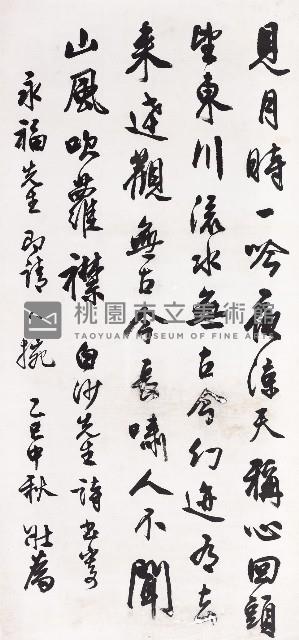 見月時一吟夜涼天稱心回頭
望東川流水無古今幻迹有去
來達觀無古今長嘯人不聞
山風吹蘿襟 白沙先生詩 書寄
永福先生 即請 乙巳中秋 壯為
桃園市立美術館
TAOYUAN MUSEUM OF FINE ARTS